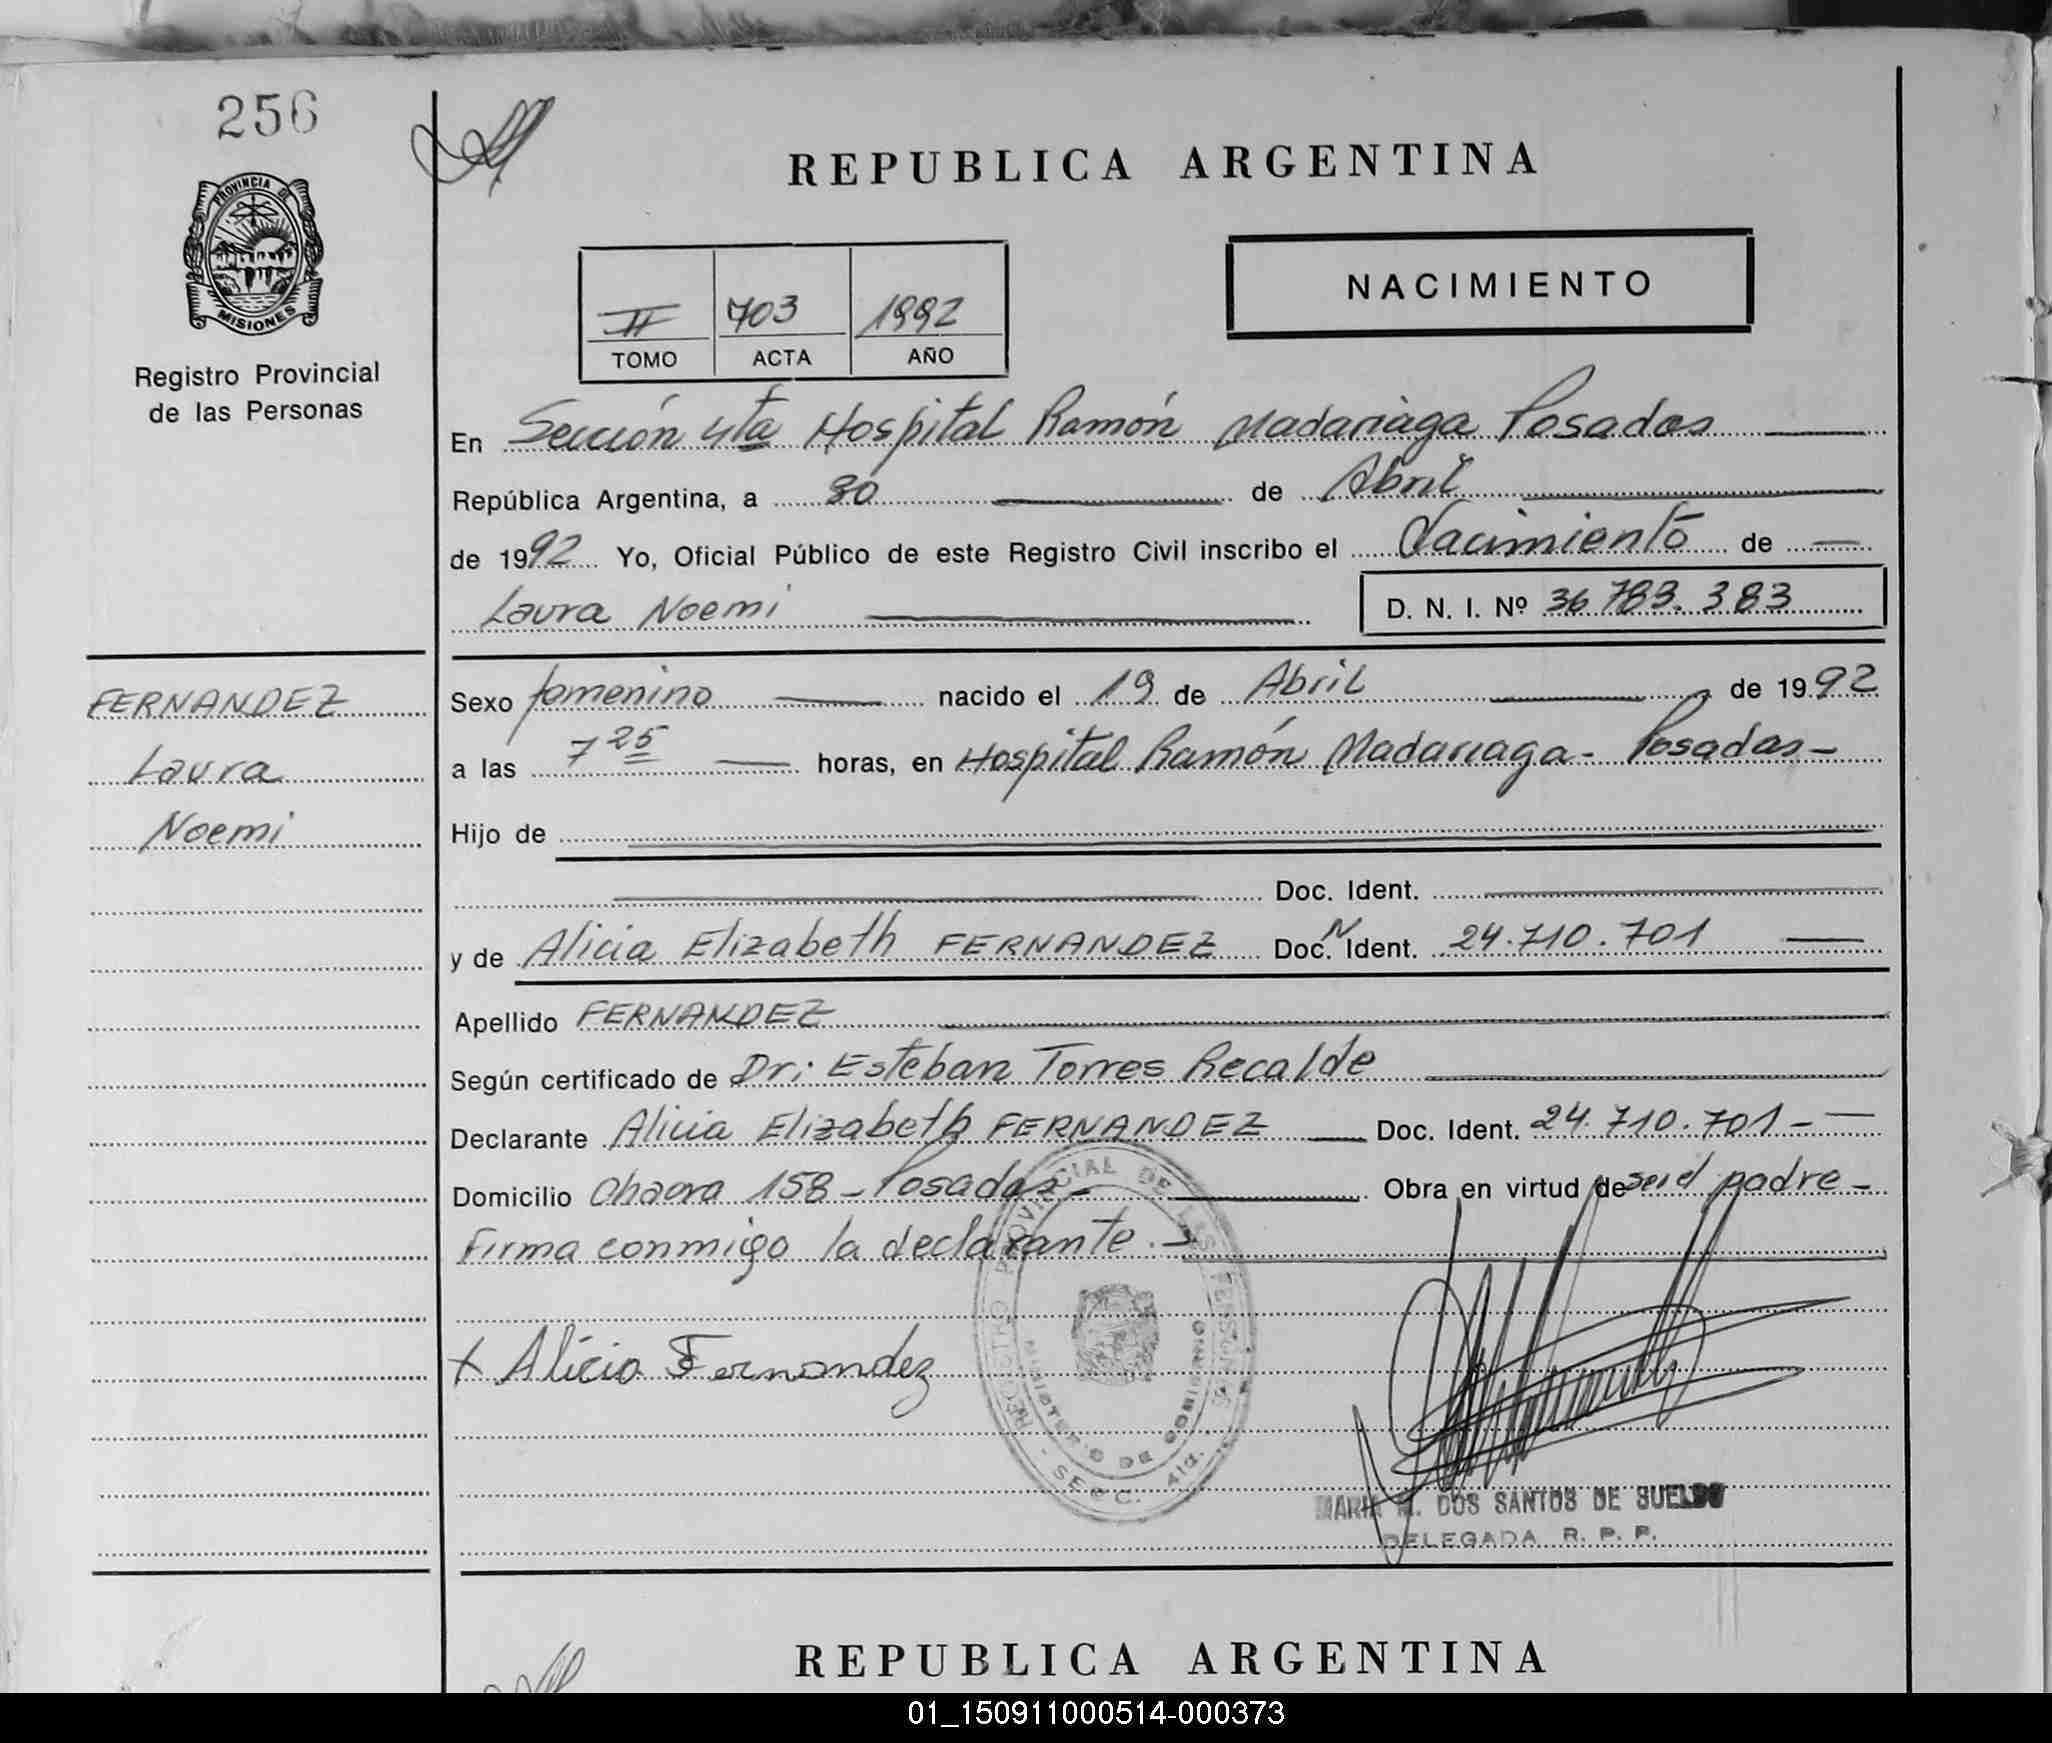 256
REPUBLICA ARGENTINA
PROVINCIA DE
MISIONES
Registro Provincial
de las Personas
II 703 1992
TOMO ACTA AÑO
NACIMIENTO
En Sección 4ta Hospital Ramón Madariaga Posadas
República Argentina, a 30 de Abril
de 1992 Yo, Oficial Público de este Registro Civil inscribo el Nacimiento de
Laura Noemi D. N. I. Nº 36.783.383
FERNANDEZ
Laura
Noemi
Sexo femenino nacido el 19 de Abril de 1992
a las 7 25 horas, en Hospital Ramón Madariaga - Posadas -
Hijo de
Doc. Ident.
y de Alicia Elizabeth FERNANDEZ Doc. N Ident. 24.710.701
Apellido FERNANDEZ
Según certificado de Dr: Esteban Torres Recalde
Declarante Alicia Elizabeth FERNANDEZ Doc. Ident. 24.710.701 -
Domicilio Chacra 158 - Posadas - Obra en virtud de padre -
Firma conmigo la declarante. -
x Alicia Fernandez
REGISTRO PROVINCIAL DE LAS PERSONAS
MINISTERIO DE GOBIERNO
- SECC. 4ta.
MARIA M. DOS SANTOS DE SUELDO
DELEGADA R. P. P.
REPUBLICA ARGENTINA
01_150911000514-000373